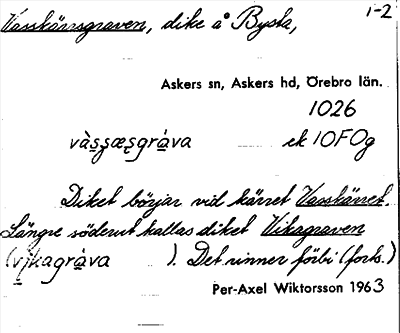 Vasskärrsgraven, dike å Bysta, 1-2
Askers sn, Askers hd, Örebro län.
1026
vàs̱ʂæʂgráva ek 10F0g
Diket börjar vid kärret Vasskärret.
Längre söderut kallas diket Vikagraven
(vikagráva ). Det rinner förbi (forts.)
Per-Axel Wiktorsson 1963